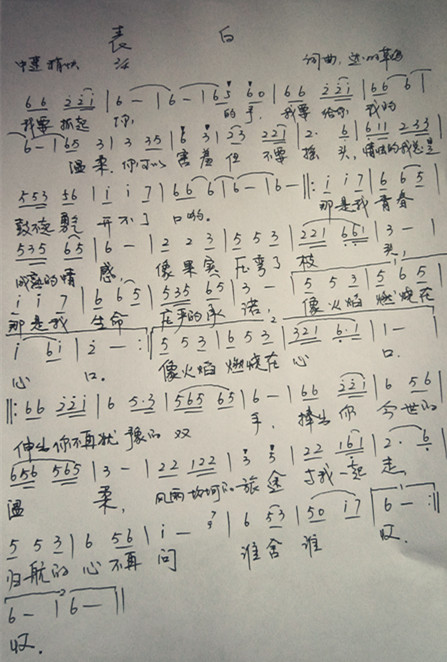 表 白
中速 稍快 词曲:
6 6 2 2 1 | 6 - | 6 - | 6 5 6 0 | 6 6 2 2 1 | 6 6 6 |
我要 抓起 你 的手, 我要 给你 我的
6 - | 6 5 3 | 3 3 5 | 6 3 | 2 3 2 2 1 | 2· 6 | 6 1 1 2 3 3 |
温柔. 你可以 害羞 但 不要 摇 头, 情怯的我总是
5 5 3 5 6 | i i 7 | 6 6 6 | 6 - | 6 - ‖: i i 7 | 6 6 5 |
鼓不起 勇气 开不了 口哟. 那是我 青春
5 3 5 6 5 | 6 - | 2 2 3 | 5 5 3 | 2 2 1 6 6 1 | 3 - |
成熟的情 感, 像果实 压弯了 枝 头,
i i 7 | 6 6 5 | 5 3 5 6 5 | 3 - | 5 5 3 | 5 6 5 |
那是我 生命 庄严的承 诺, 像火焰 燃烧在
i 6 i | 2 - :‖ 5 5 3 | 6 5 3 | 3 2 1 6·1 | 1 - |
心 口. 像火焰 燃烧在 心 口.
‖: 6 6 2 2 i | 6 5·3 | 5 6 5 6 5 | 6 - | 6 6 2 2 i | 6 5 6 |
伸出 你不再犹 豫的 双 手, 捧出 你 今世的
6 5 6 5 6 5 | 3 - | 2 2 1 2 2 | 3 3 | 2 2 1 6 1 | 2· 6 |
温 柔, 风雨坎坷的 旅途 与我一起 走,
5 5 3 | 6 5 6 | i - | 6 5 3 | 5 0 i 7 | 6 - :‖
归航的 心 不再 问 谁舍 谁 收.
6 - | 6 - ‖
收.